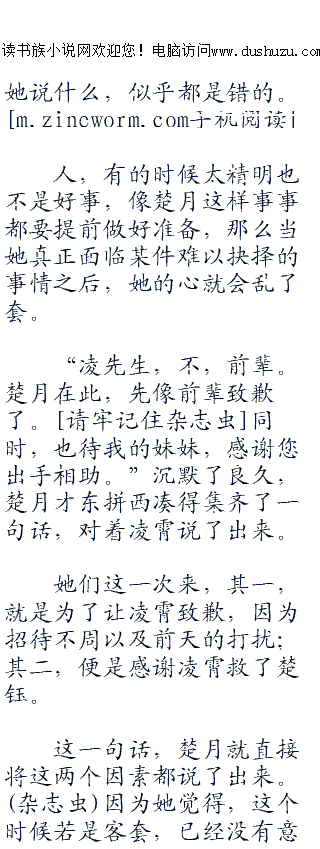 读书族小说网欢迎您！电脑访问www.dushuzu.com
她说什么，似乎都是错的。
[m.zincworm.com手机阅读]
人，有的时候太精明也
不是好事，像楚月这样事事
都要提前做好准备，那么当
她真正面临某件难以抉择的
事情之后，她的心就会乱了
套。
“凌先生，不，前辈。
楚月在此，先像前辈致歉
了。[请牢记住杂志虫]同
时，也待我的妹妹，感谢您
出手相助。”沉默了良久，
楚月才东拼西凑得集齐了一
句话，对着凌霄说了出来。
她们这一次来，其一，
就是为了让凌霄致歉，因为
招待不周以及前天的打扰；
其二，便是感谢凌霄救了楚
钰。
这一句话，楚月就直接
将这两个因素都说了出来。
(杂志虫)因为她觉得，这个
时候若是客套，已经没有意